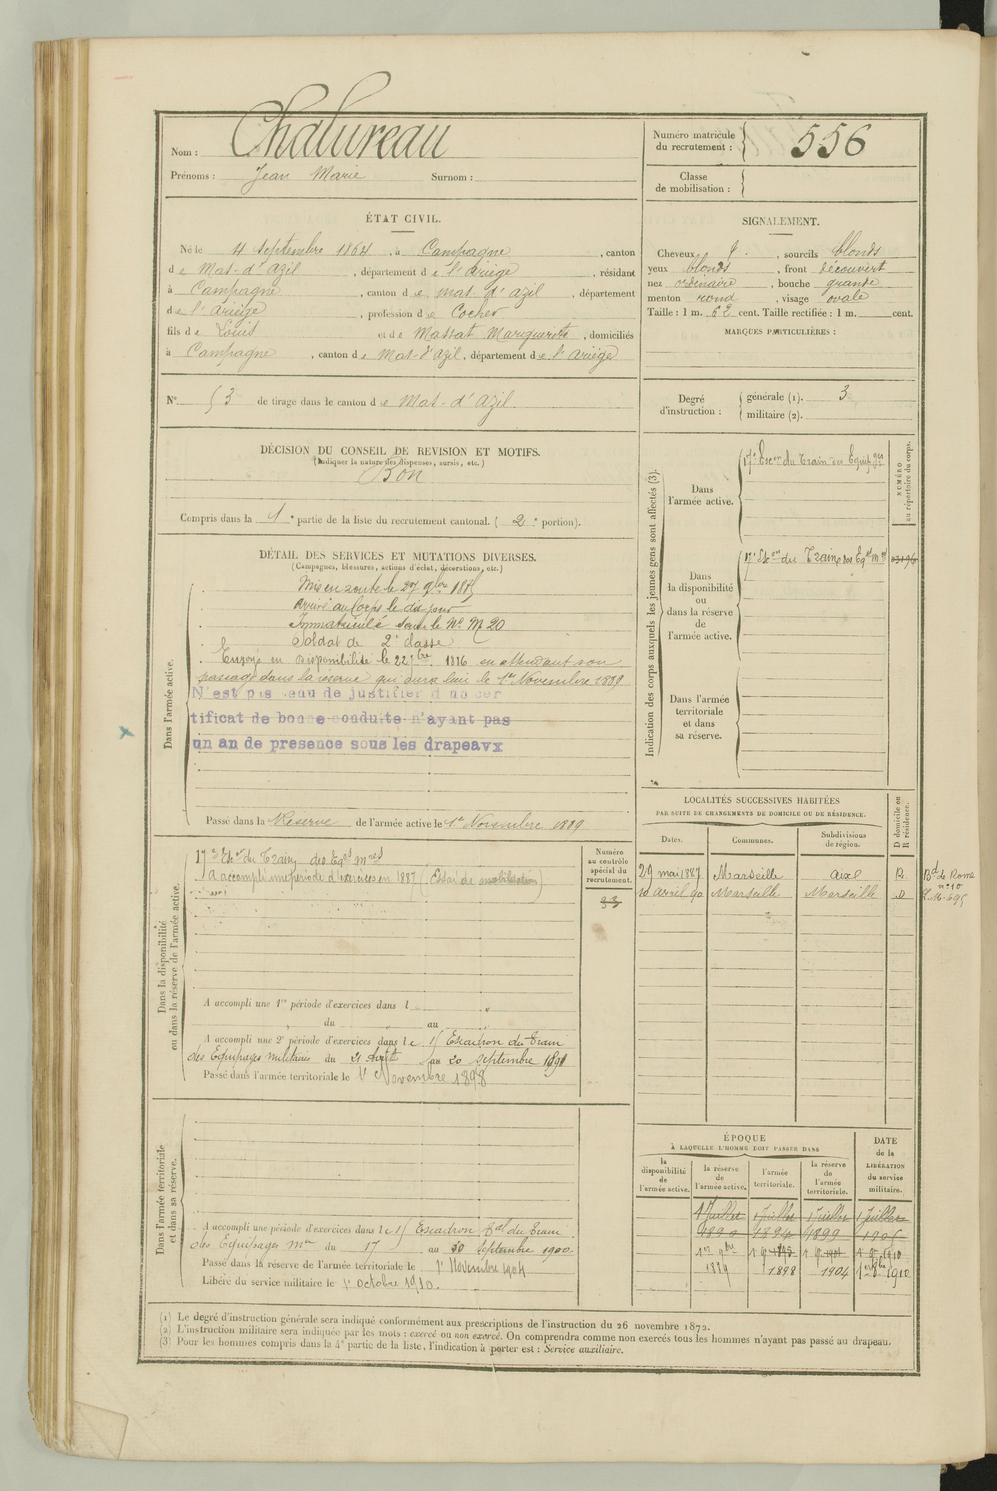 Nom : Chalureau
Prénoms : Jean Marie Surnom :
Numéro matricule du recrutement : 556
Classe de mobilisation :
ÉTAT CIVIL.
Né le 4 Septembre 1864, à Campagne, canton
de Mas-d'Azil, département de l'Ariège, résidant
à Campagne, canton de Mas d'Azil, département
de l'Ariège, profession de Cocher
fils de Louis et de Massat Marguerite, domiciliés
à Campagne, canton de Mas-d'Azil, département de l'Ariège
N° 53 de tirage dans le canton de Mas-d'Azil.
SIGNALEMENT.
Cheveux , sourcils blonds
yeux blonds, front découvert
nez ordinaire, bouche grande
menton rond, visage ovale
Taille : 1 m. 62 cent. Taille rectifiée : 1 m. cent.
MARQUES PARTICULIÈRES :
Degré d'instruction : générale (1). 3
militaire (2).
DÉCISION DU CONSEIL DE REVISION ET MOTIFS.
(Indiquer la nature des dispenses, sursis, etc.)
Bon
Compris dans la 1e partie de la liste du recrutement cantonal. (2e portion).
DÉTAIL DES SERVICES ET MUTATIONS DIVERSES.
(Campagnes, blessures, actions d'éclat, décorations, etc.)
Dans l'armée active.
Mis en route le 27 9bre 1885
Arrivé au Corps le dit jour
Immatriculé sous le N° M 20
Soldat de 2e classe
Envoyé en disponibilité le 22 1886 en attendant son
passage dans la réserve qui aura lieu le 1er Novembre 1889
N'est pas de justifier d'un cer
tificat de bonne conduite n'ayant pas
un an de presence sous les drapeavx
Passé dans la Réserve de l'armée active le 1er Novembre 1889
Indication des corps auxquels les jeunes gens sont affectés (3).
Dans l'armée active.
17e Escon du Train des Equip ges
Dans la disponibilité ou dans la réserve de l'armée active.
17e Escon du Train des Eqes mres
Dans l'armée territoriale et dans sa réserve.
NUMÉRO au répertoire du corps.
Dans la disponibilité ou dans la réserve de l'armée active.
17e Escon du Train des Eqes mres
A accompli une période d'exercices en 1887 (Essai de mobilisation)
Numéro au contrôle spécial du recrutement.
33
A accompli une 1re période d'exercices dans l
du au
A accompli une 2e période d'exercices dans le 17 Escadron du Train
des Equipages militaires du 24 Août au 20 Septembre 1891
Passé dans l'armée territoriale le 1er Novembre 1898
LOCALITÉS SUCCESSIVES HABITÉES
PAR SUITE DE CHANGEMENTS DE DOMICILE OU DE RÉSIDENCE.
Dates. Communes. Subdivisions de région. D domicile ou R résidence.
29 mai 1887 Marseille Aix R Bd de Rome n° 10
10 avril 90 Marseille Marseille D
Dans l'armée territoriale et dans sa réserve.
A accompli une période d'exercices dans le 17 Escadron du Train
des Equipages Mres du 17 au 30 Septembre 1900
Passé dans la réserve de l'armée territoriale le 1er Novembre 1904
Libéré du service militaire le 1er Octobre 1910.
ÉPOQUE
À LAQUELLE L'HOMME DOIT PASSER DANS
la disponibilité de l'armée active. la réserve de l'armée active. l'armée territoriale. la réserve de l'armée territoriale.
DATE de la LIBÉRATION du service militaire.
1 Juillet 1890 1 Juillet 1894 1 Juillet 1899 1 Juillet 1905
1er 9bre 1889 1898 1904 1910
(1) Le degré d'instruction générale sera indiqué conformément aux prescriptions de l'instruction du 26 novembre 1872.
(2) L'instruction militaire sera indiquée par les mots : exercé ou non exercé. On comprendra comme non exercés tous les hommes n'ayant pas passé au drapeau.
(3) Pour les hommes compris dans la 4e partie de la liste, l'indication à porter est : Service auxiliaire.